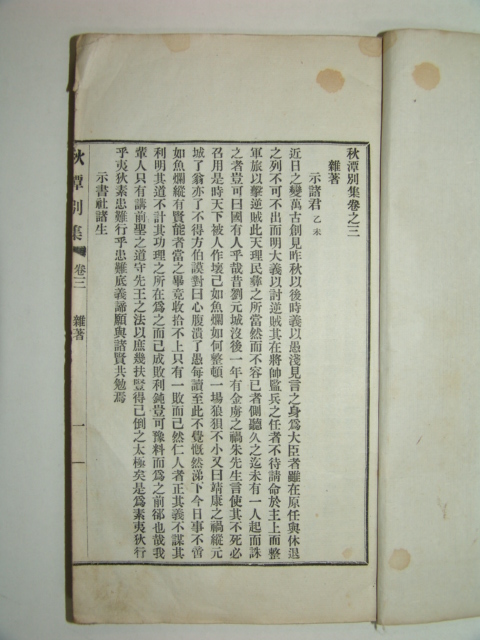 秋潭別集卷之三
雜著
示諸君 乙未
近日之變萬古創見昨秋以後時義以愚淺見言之身爲大臣者雖在原任與休退
之列不可不出而明大義以討逆賊其在將帥監兵之任者不待請命於主上而整
軍旅以擊逆賊此天理民彝之所當然而不容已者側聽久之迄未有一人起而誅
之者可曰國有人乎哉昔劉元城沒後一年有金虜之禍朱先生言使其不死必
召用是時天下被人作壞己如魚爛如何整頓一場狼狽不小又曰靖康之禍縱元
城了翁亦了不得方伯謨對曰心腹潰了愚每讀至此不覺慨然涕下今日事不啻
如魚爛縱有賢能者當之畢竟收拾不上只有一敗而己然仁人者正其義不謀其
利明其道不計其功理之所在爲之而己成敗利鈍豈可豫料而爲之前郤也哉我
輩人只有講前聖之道守先王之法以庶幾扶豎得已倒之太極矣是爲素夷狄行
乎夷狄素患難行乎患難底義諦願與諸賢共勉焉
示書社諸生
秋潭別集 卷三 雜著 一